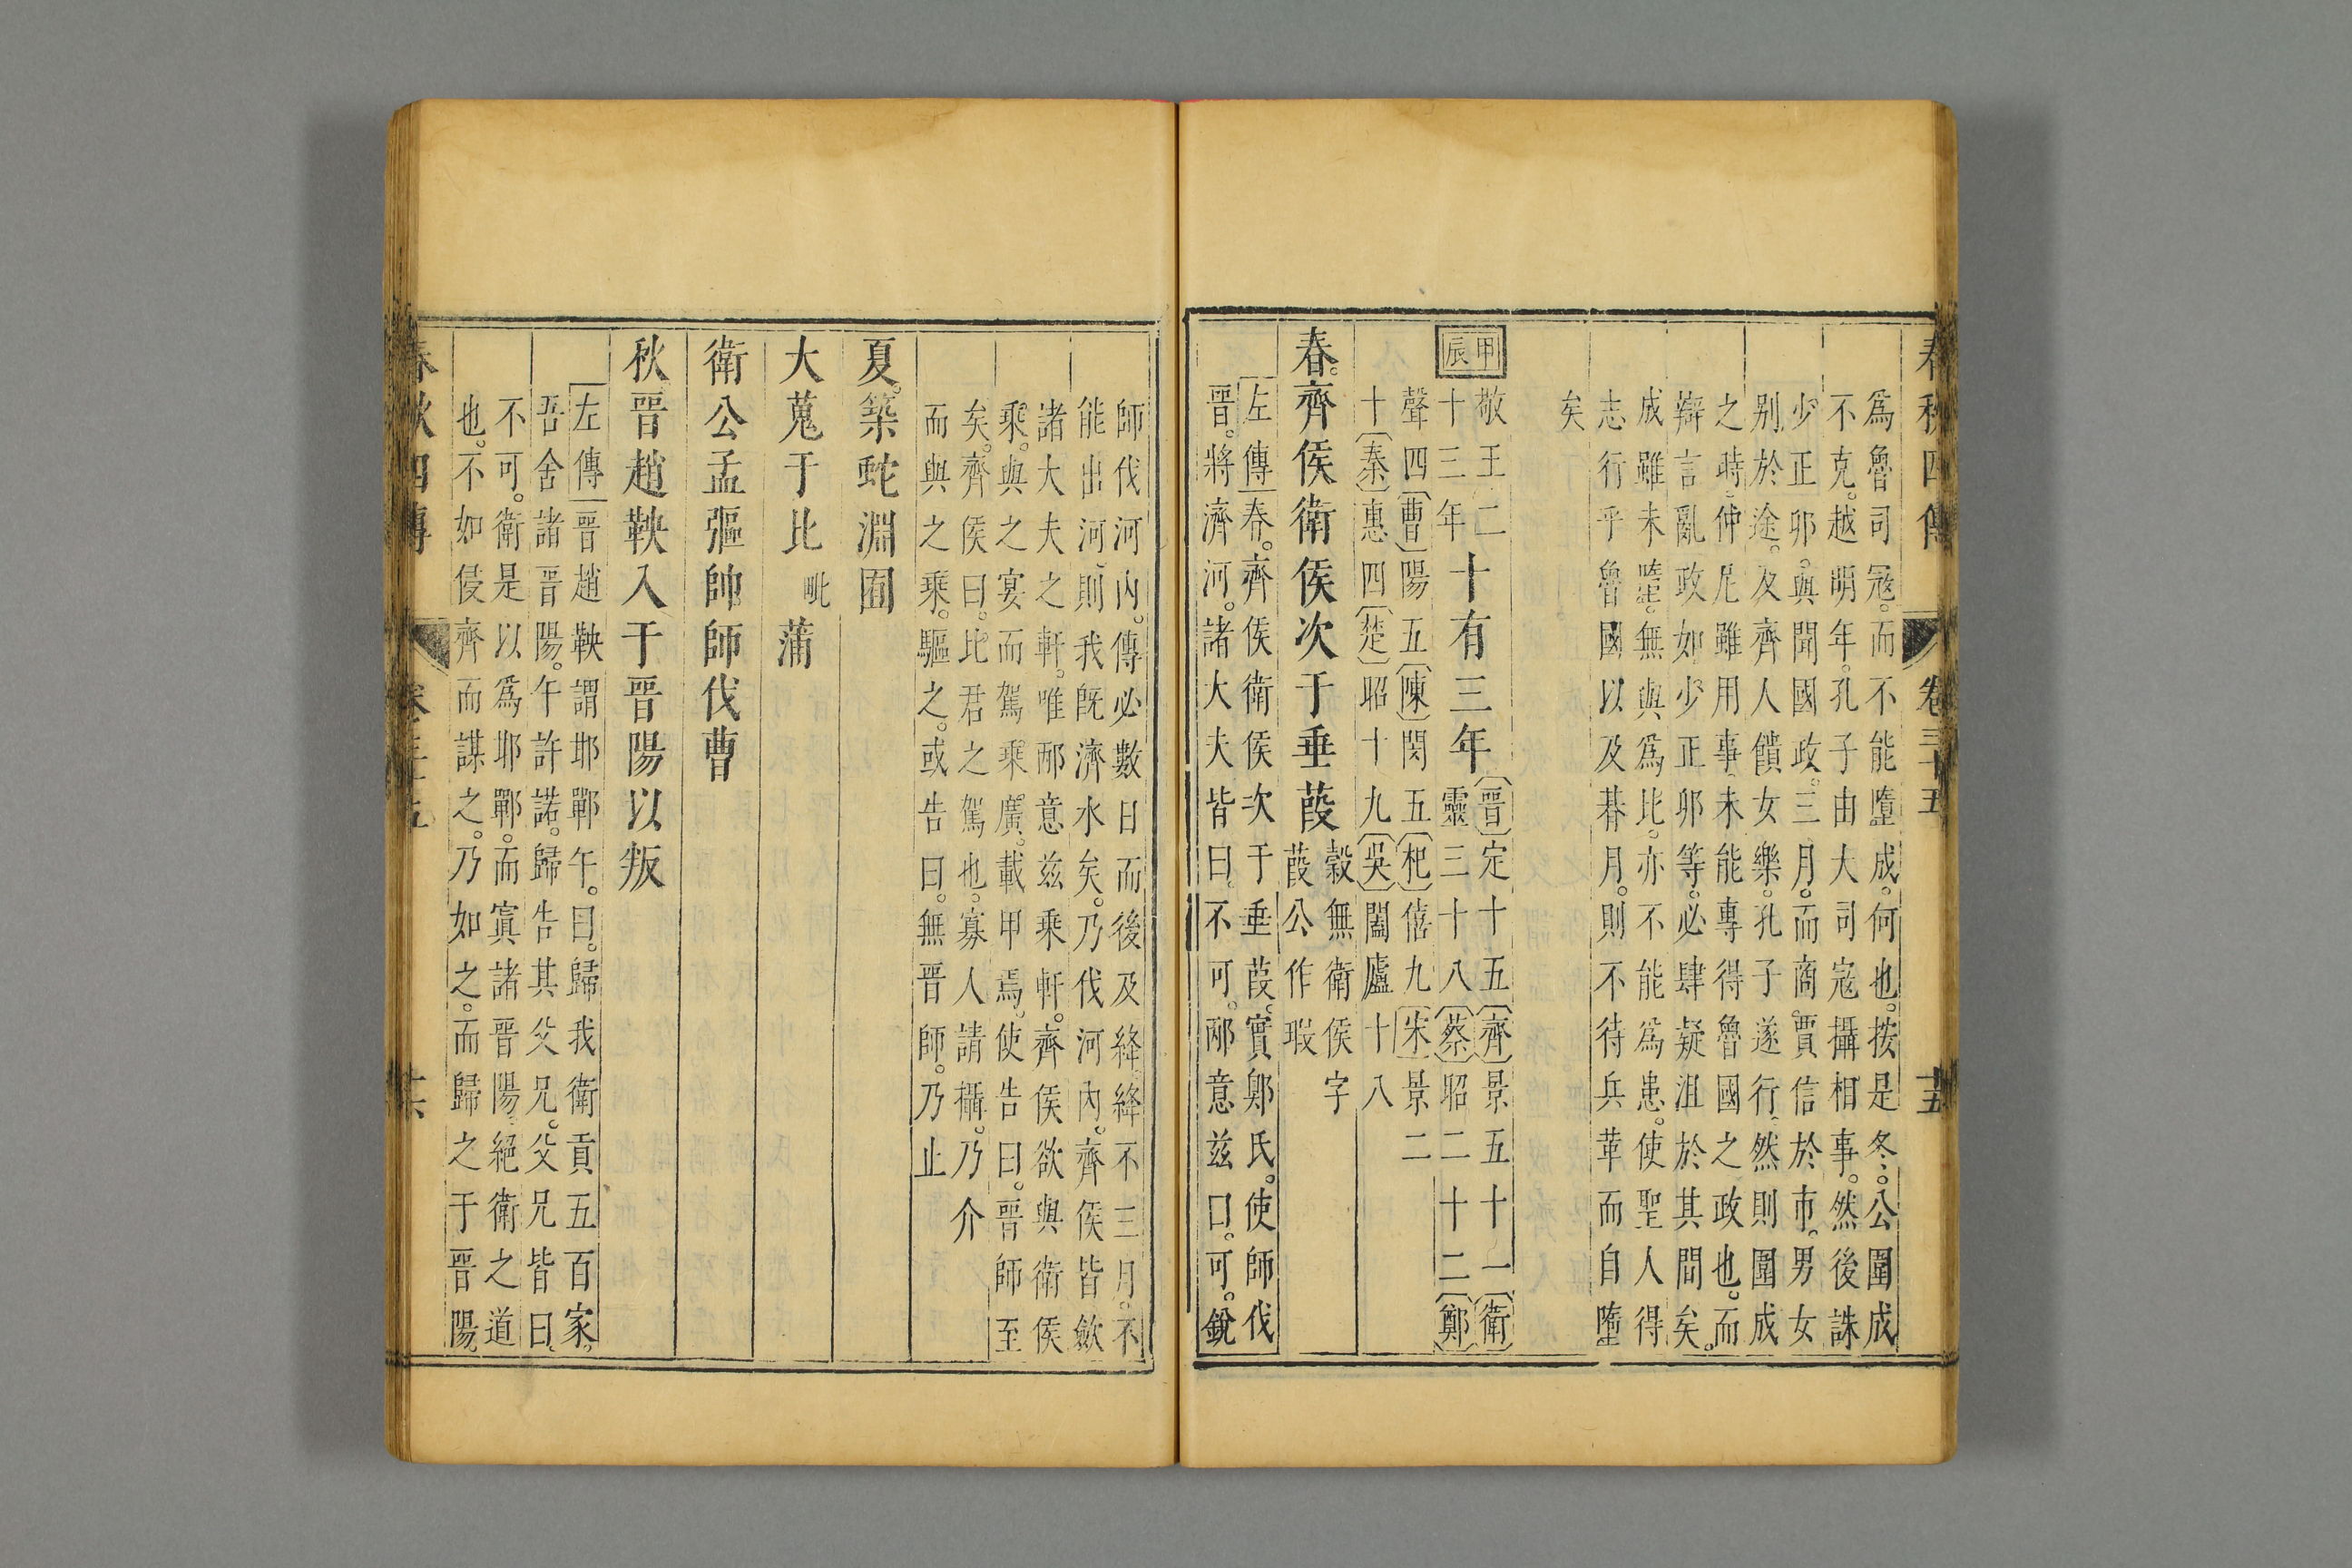 春秋四傳 卷三十五 十五
爲魯司寇。而不能墮成。何也。按是冬。公圍成
不克。越明年。孔子由大司寇攝相事。然後誅
少正卯。與聞國政。三月。而商賈信於市。男女
別於途。及齊人饋女樂。孔子遂行。然則圍成
之時。仲尼雖用事。未能專得魯國之政也。而
辯言亂政如少正卯等。必肆疑沮於其間矣。
成雖未墮。無與爲比。亦不能爲患。使聖人得
志行乎魯國以及朞月。則不待兵革而自墮
矣
甲辰
敬王二十三年
十有三年
晉定十五齊景五十一衛靈三十八蔡昭二十二鄭
聲四曹陽五陳閔五杞僖九宋景二
十秦惠四楚昭十九吳闔廬十八
春。齊侯衛侯次于垂葭
穀無衛侯字
葭公作瑕
左傳春。齊侯衛侯次于垂葭。實郹氏。使師伐
晉。將濟河。諸大夫皆曰。不可。邴意茲曰。可。銳
師伐河內。傳必數日而後及絳。絳不三月。不
能出河。則我旣濟水矣。乃伐河內。齊侯皆斂
諸大夫之軒。唯邴意茲乘軒。齊侯欲與衛侯
乘。與之宴而駕乘廣。載甲焉。使告曰。晉師至
矣。齊侯曰。比君之駕也。寡人請攝。乃介
而與之乘。驅之。或告曰。無晉師。乃止
夏。築蛇淵囿
大蒐于比毗蒲
衛公孟彄帥師伐曹
秋晉趙鞅入于晉陽以叛
左傳晉趙鞅謂邯鄲午。曰。歸我衛貢五百家。
吾舍諸晉陽。午許諾。歸告其父兄。父兄皆曰。
不可。衛是以爲邯鄲。而寘諸晉陽。絕衛之道
也。不如侵齊而謀之。乃如之。而歸之于晉陽。
春秋四傳 卷三十五 十六